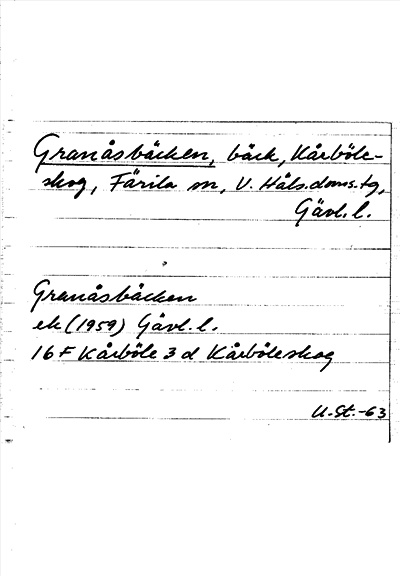 Granåsbäcken, bäck, Kårböle-
skog, Färila sn, V. Häls. doms. tg,
Gävl. l.
Granåsbäcken
ek (1959) Gävl. l.
16 F Kårböle 3 d Kårböleskog
U. St. -63